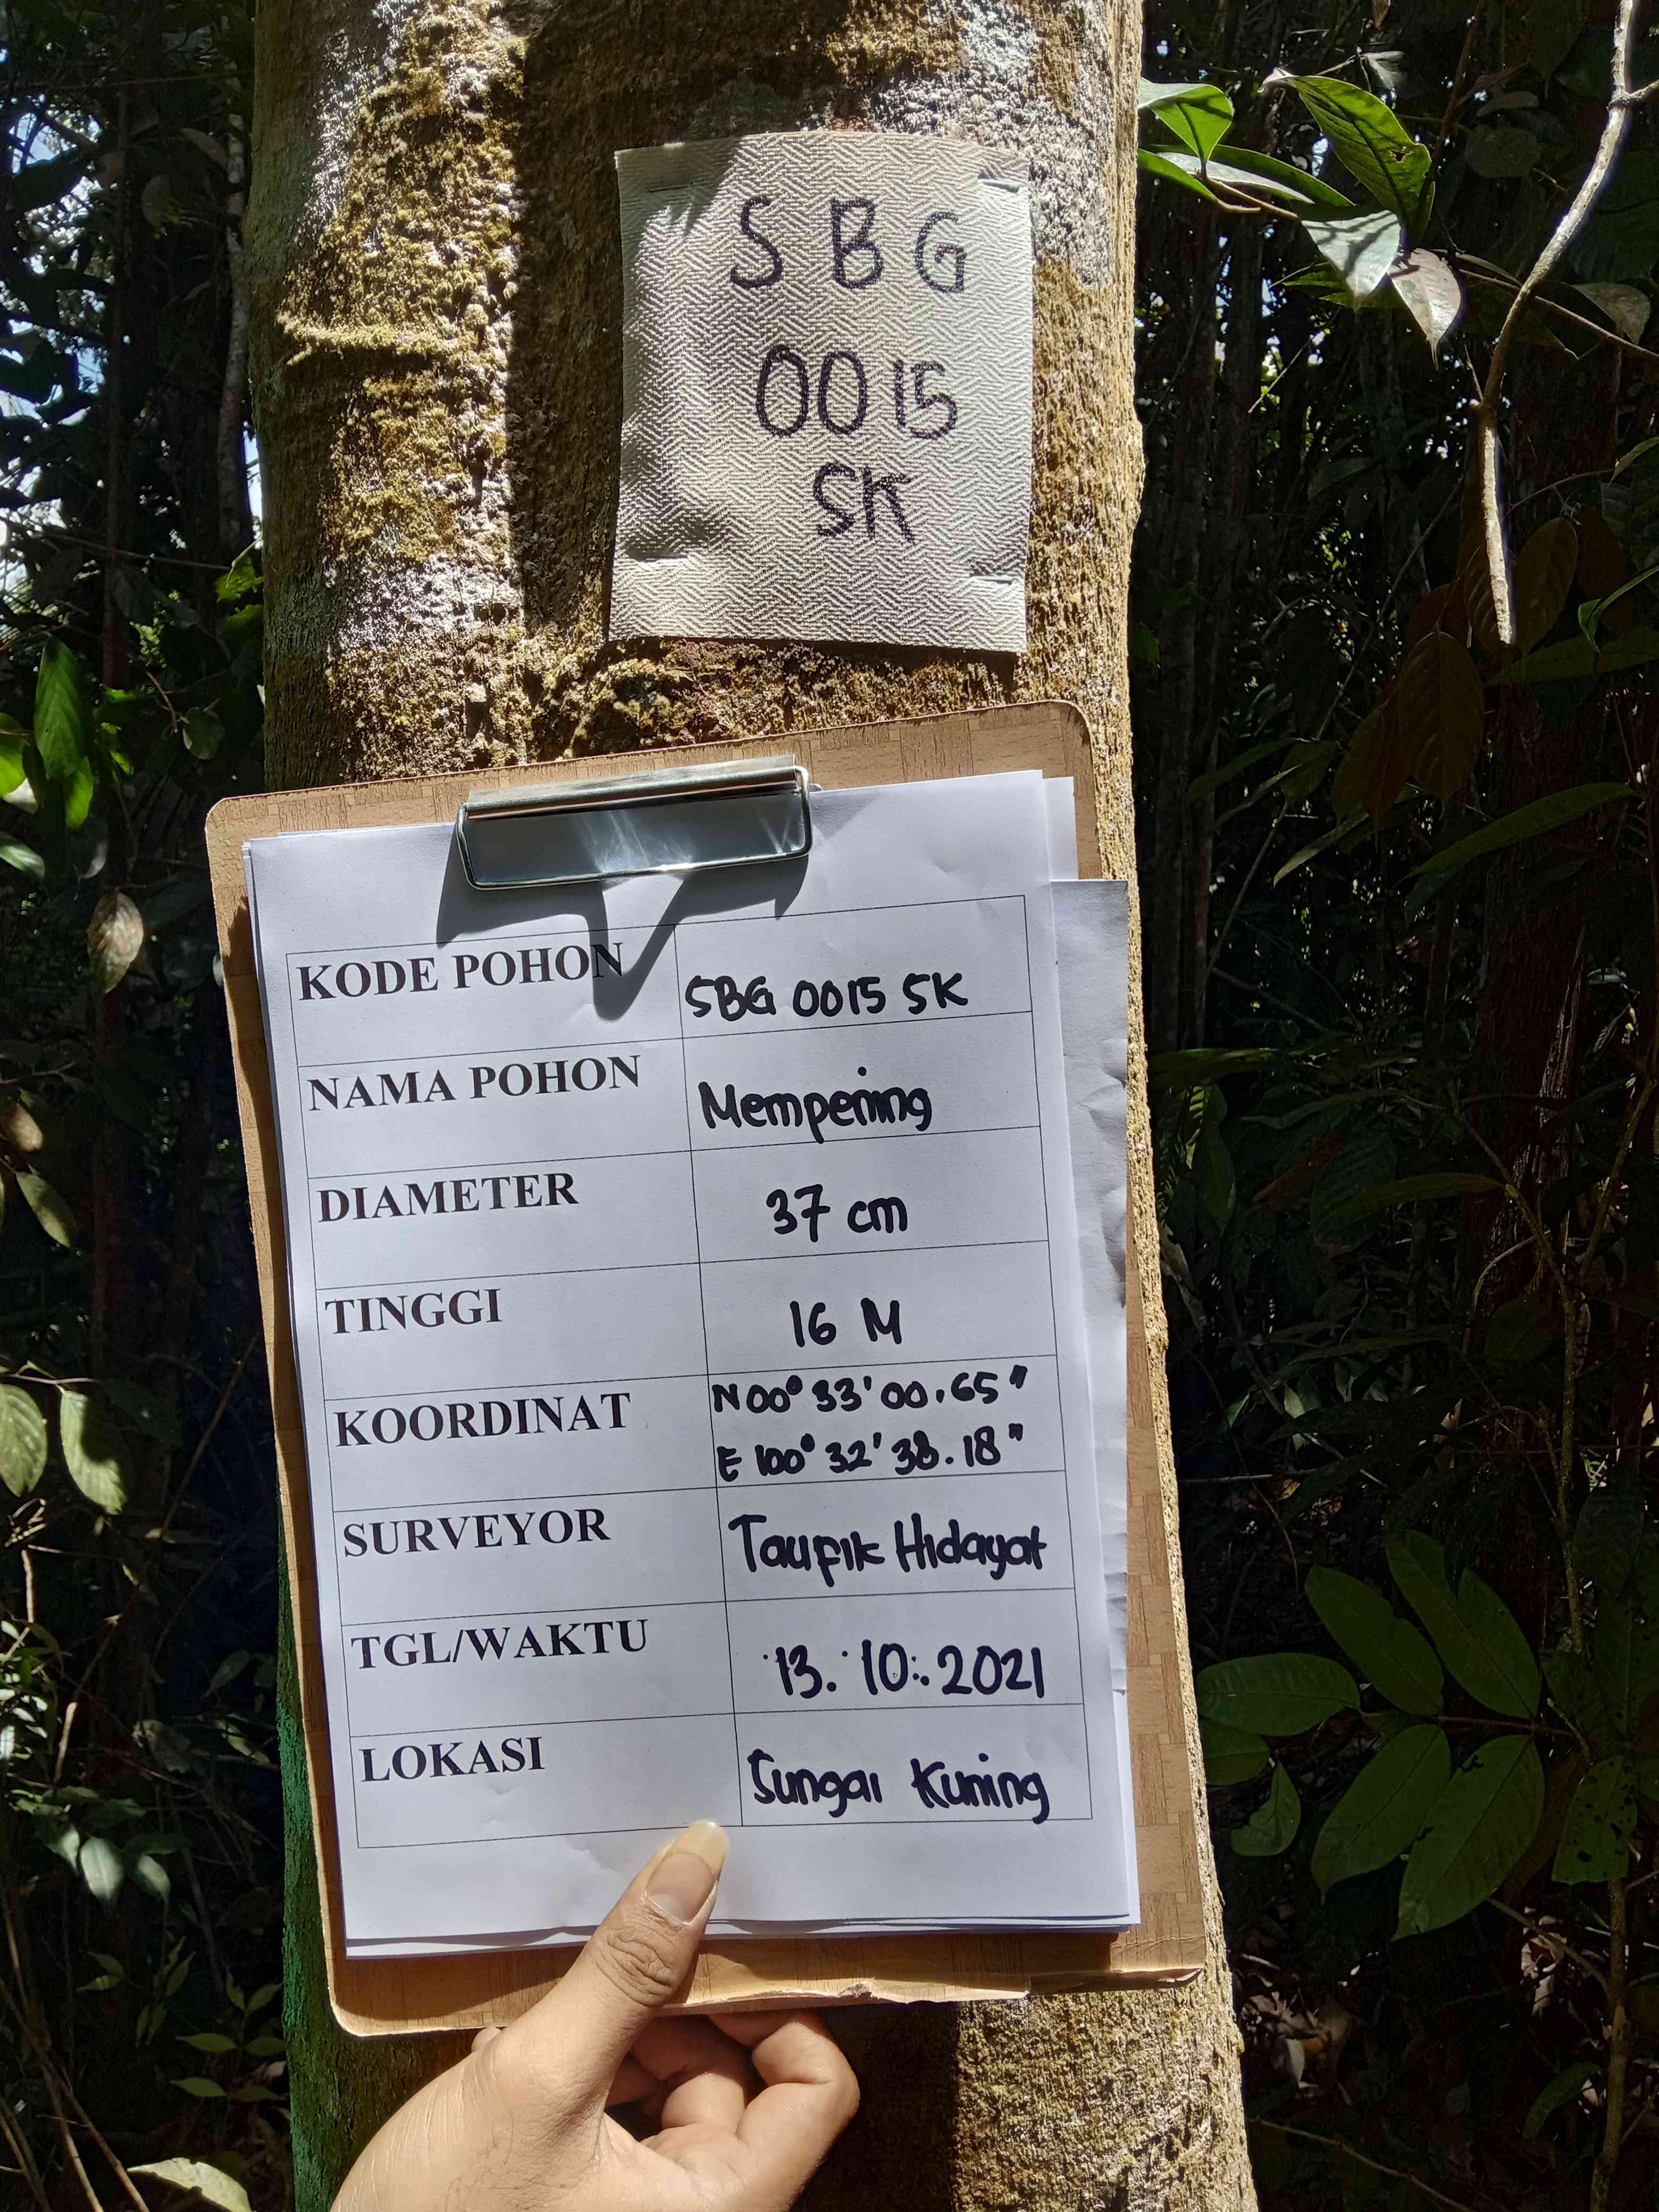 SBG
0015
SK
KODE POHON SBG 0015 SK
NAMA POHON Mempening
DIAMETER 37 cm
TINGGI 16 M
KOORDINAT N00° 33' 00.65"
E 100° 32' 38.18"
SURVEYOR Taupik Hidayat
TGL/WAKTU 13. 10. 2021
LOKASI Sungai Kuning